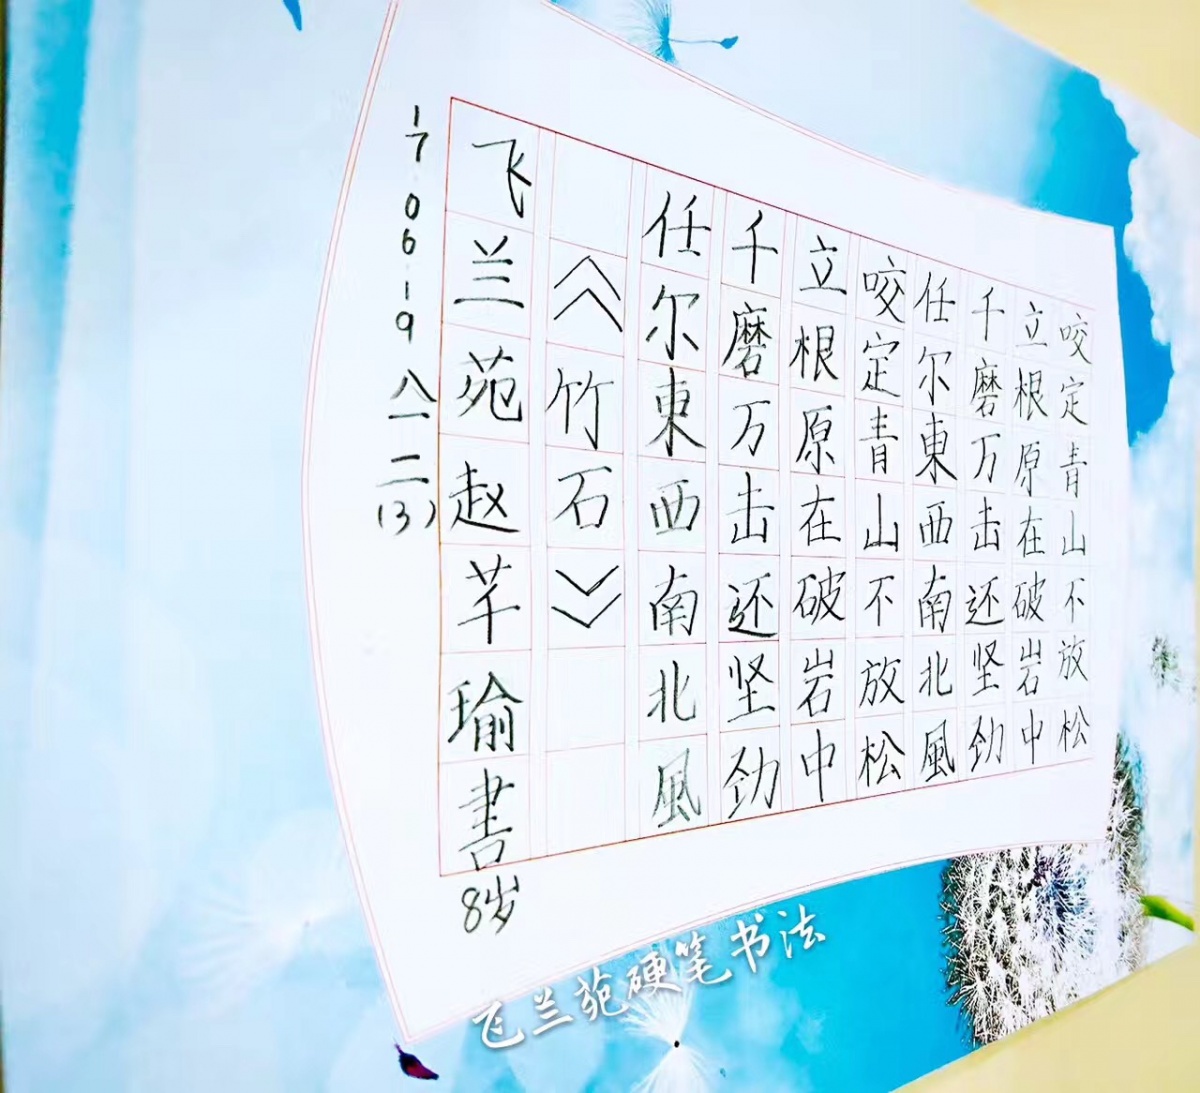 咬定青山不放松
立根原在破岩中
千磨万击还坚劲
任尔東西南北風
咬定青山不放松
立根原在破岩中
千磨万击还坚劲
任尔東西南北風
《竹石》
飞兰苑赵芊瑜書
8岁
17.06.19
八一二(3)
飞兰苑硬笔书法